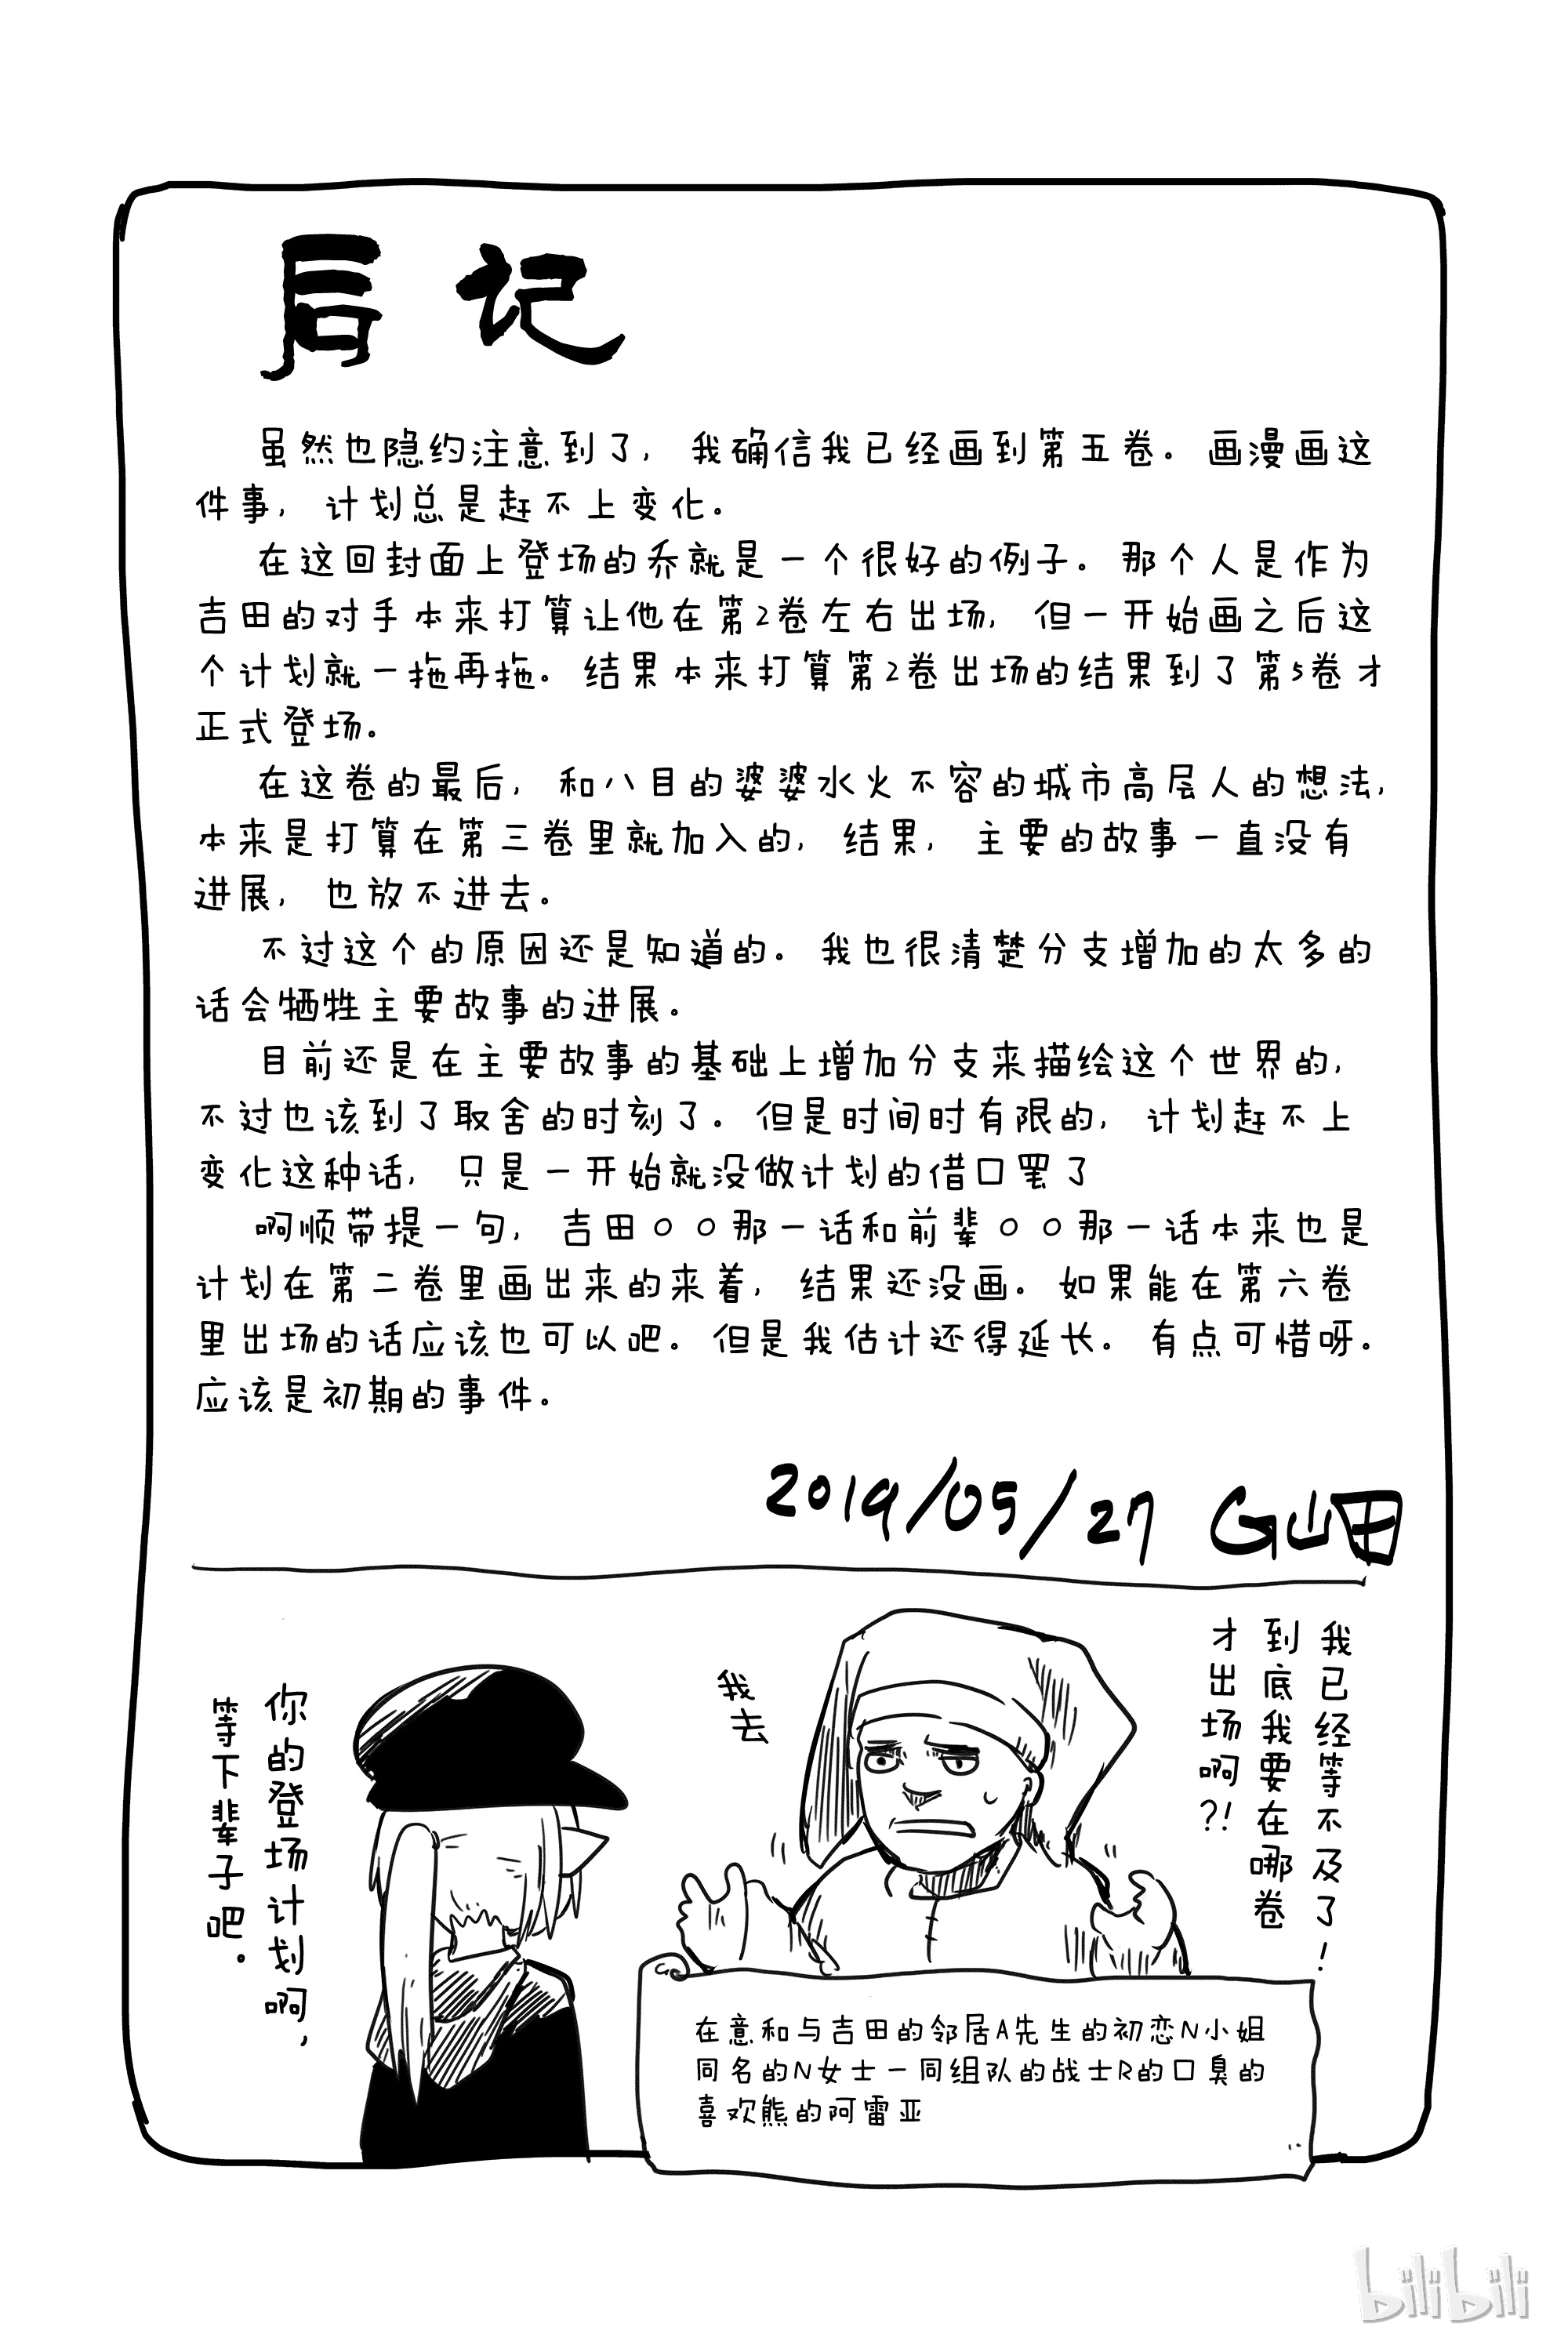 后记
虽然也隐约注意到了，我确信我已经画到第五卷。画漫画这
件事，计划总是赶不上变化。
在这回封面上登场的乔就是一个很好的例子。那个人是作为
吉田的对手本来打算让他在第2卷左右出场，但一开始画之后这
个计划就一拖再拖。结果本来打算第2卷出场的结果到了第5卷才
正式登场。
在这卷的最后，和八目的婆婆水火不容的城市高层人的想法，
本来是打算在第三卷里就加入的，结果，主要的故事一直没有
进展，也放不进去。
不过这个的原因还是知道的。我也很清楚分支增加的太多的
话会牺牲主要故事的进展。
目前还是在主要故事的基础上增加分支来描绘这个世界的，
不过也该到了取舍的时刻了。但是时间时有限的，计划赶不上
变化这种话，只是一开始就没做计划的借口罢了
啊顺带提一句，吉田○○那一话和前辈○○那一话本来也是
计划在第二卷里画出来的来着，结果还没画。如果能在第六卷
里出场的话应该也可以吧。但是我估计还得延长。有点可惜呀。
应该是初期的事件。
2019/05/27 G山田
我已经等不及了！
到底我要在哪卷
才出场啊？！
我去
你的登场计划啊，
等下辈子吧。
在意和与吉田的邻居A先生的初恋N小姐
同名的N女士一同组队的战士R的口臭的
喜欢熊的阿雷亚
bilibili